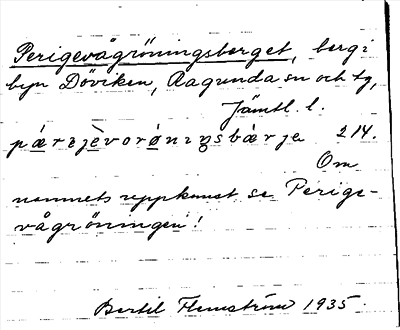 Perigevågröningsberget, berg i
byn Döviken, Ragunda sn och tg,
Jämtl. l.
214.
Om
namnets uppkomst se Perige-
vågröningen!
Bertil Flemström 1935